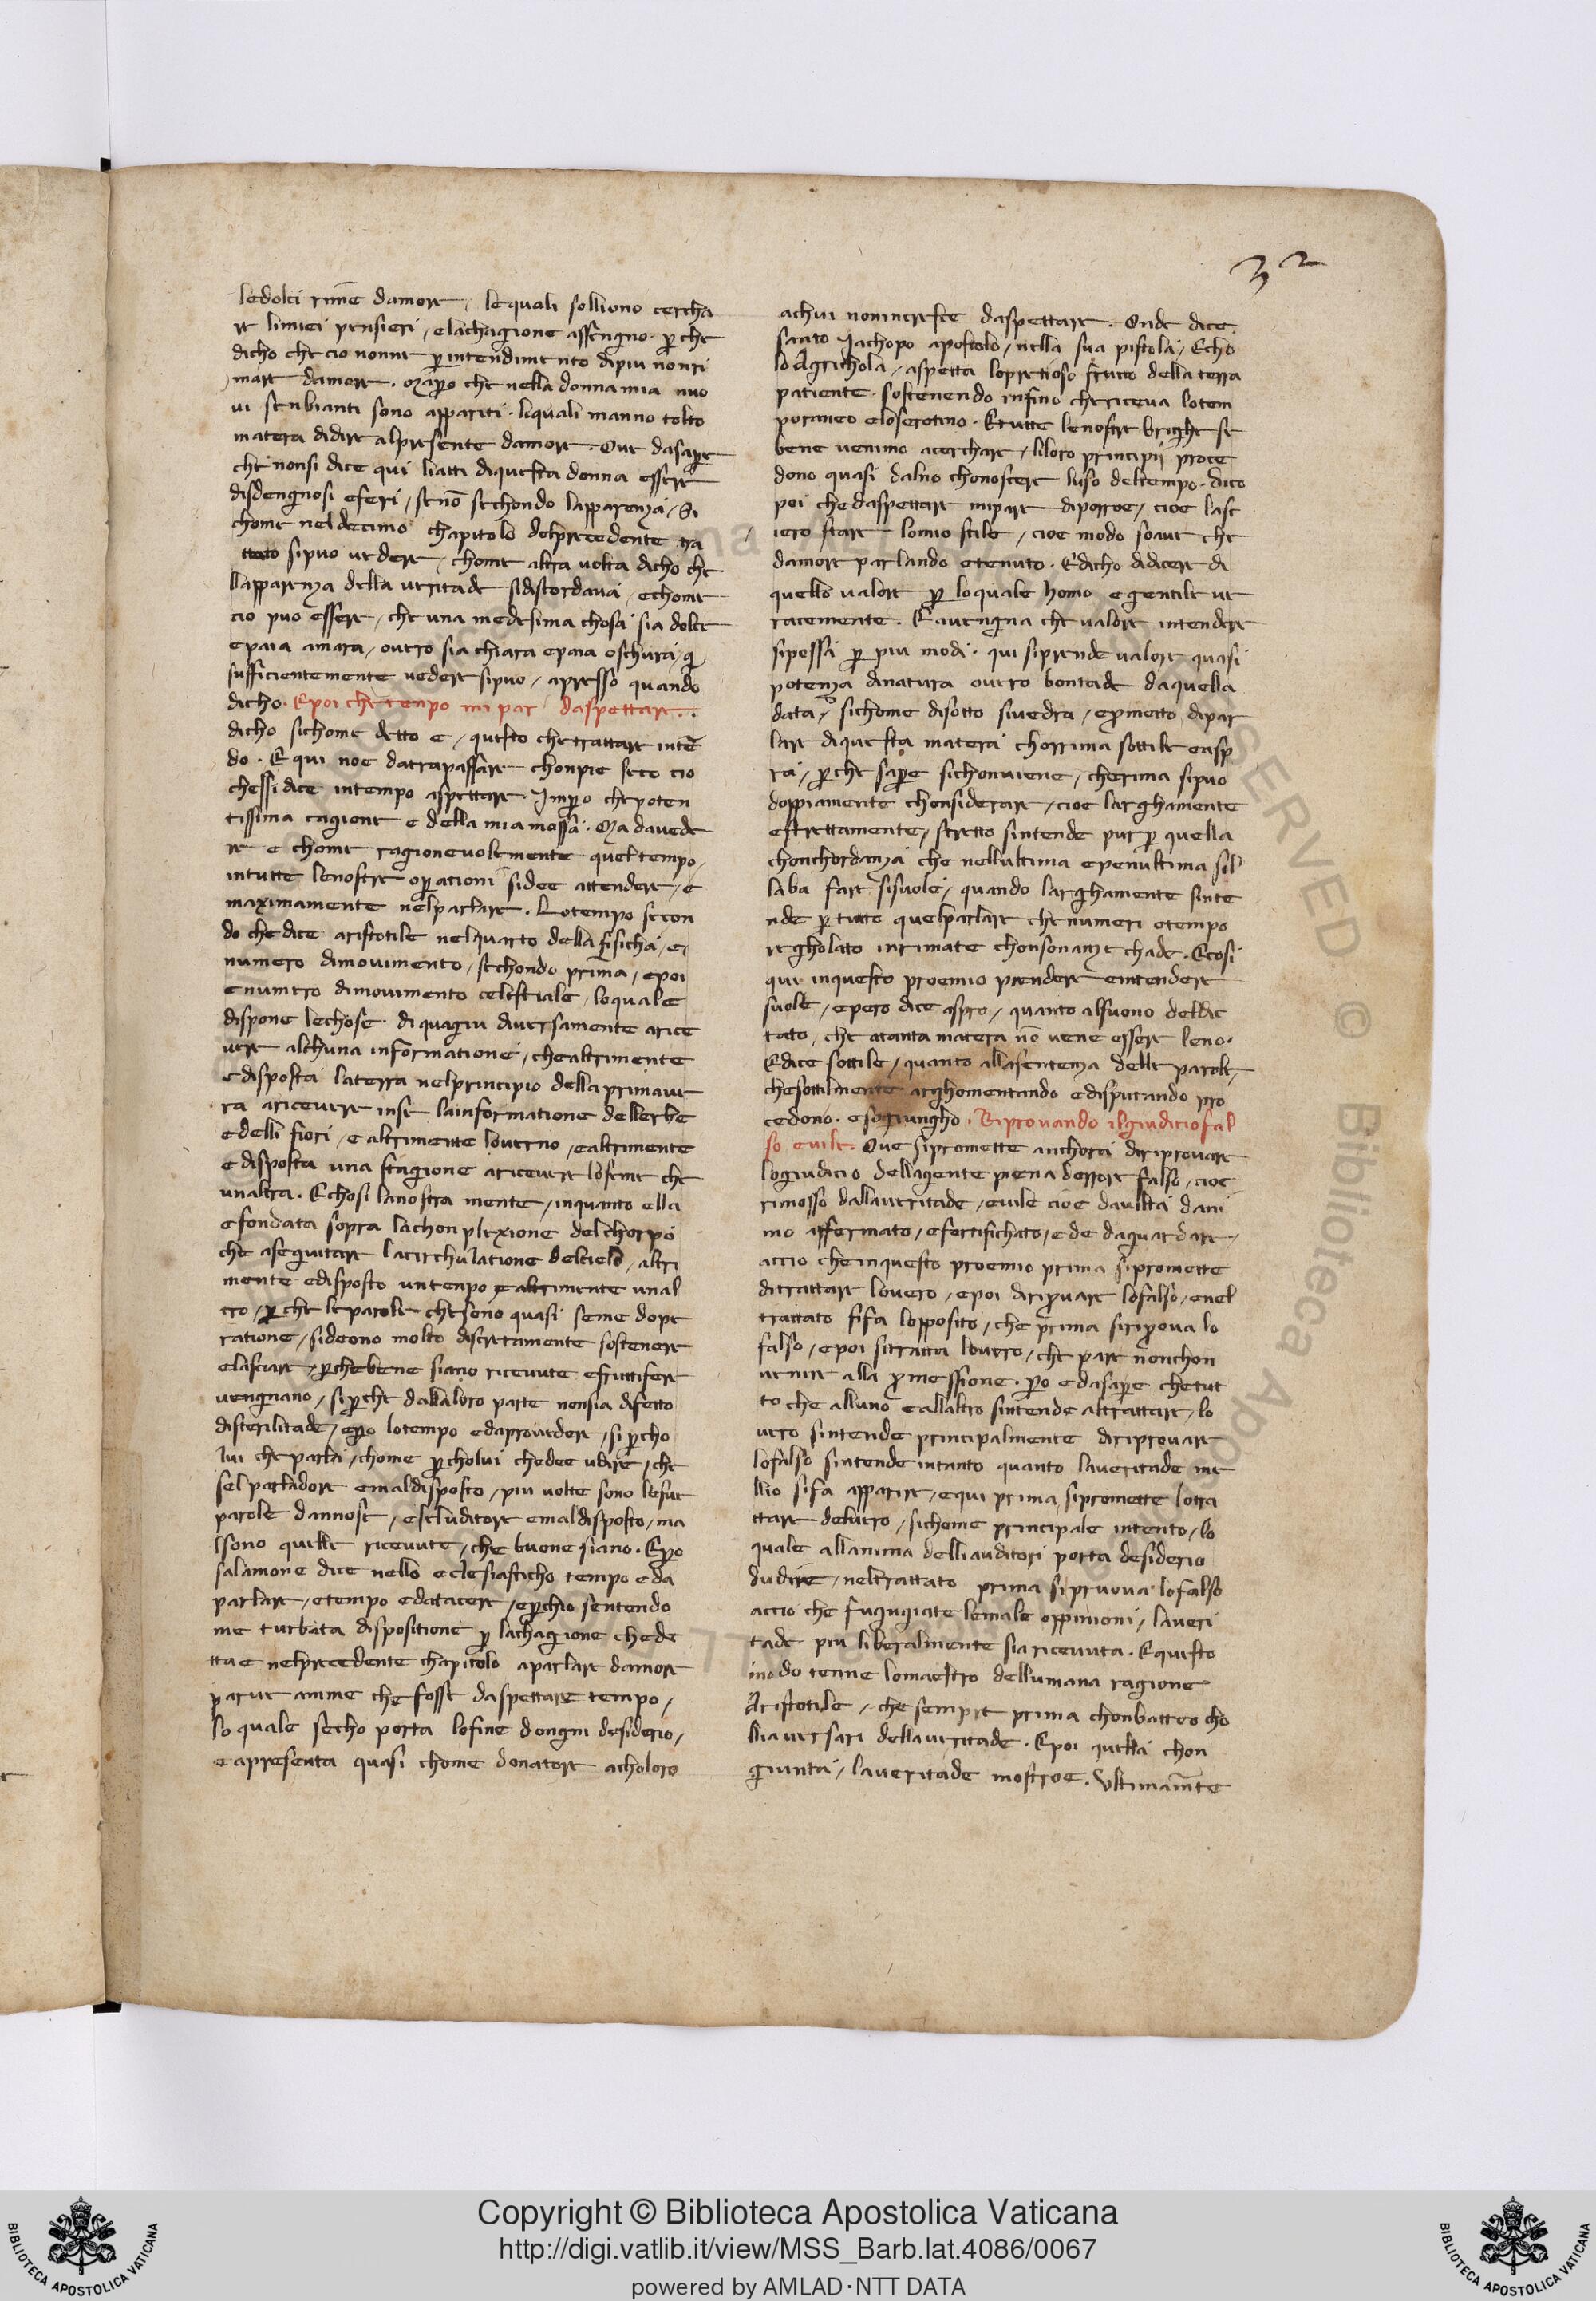 32
ledolci rime damore / lequali sollieno cercha
re limiei pensieri / elachagione assengno. ꝑche
dicho che cio nonne ꝑ intendimento dipiu nonri
mare damore. Maꝑo che nella donna mia nuo
ui senbianti sono appariti. liquali manno tolto
matera didire alpresente damore. Oue dasaꝑe
che nonsi dice qui liatti diquesta donna essere
disdengnosi eferi / seno sechondo lapparenza / Si
chome nel decimo chapitolo delprecedente tra
ttato sipuo uedere / chome altra uolta dicho che
llapparenza della ueritade sidiscordaua / echome
cio puo essere / che una medesima chosa sia dolce
epaia amara / ouero sia chiara epaia oschura / q
sufficientemente uedere sipuo / apresso quando
dicho. Epoi che tenpo mi par daspettare..
dicho sichome detto e / questo che trattare inte
do. E qui noe datrapassare chonpie seco cio
chessi dice intempo aspettare. Imꝑo che poten
tissima cagione e della mia mossa. Ma dauede
re e chome ragioneuolemente quel tempo
intutte lenostre oꝑationi sidee attendere / e
maximamente nelparlare. Lo tempo secon
do che dice aristotile nelquarto della fisicha / e
numero dimouimento / sechondo prima / epoi
enumero dimouimento celestiale / loquale
dispone lechose di quagiu diuersamente arice
uere alchuna informatione / che altrimente
edisposta laterra nelprincipio della primaue
ra ariceuere inse lainformatione dellerbe
edelli fiori / e altrimente louerno / ealtrimente
e disposta una stagione ariceuere loseme che
unaltra. Echosi lanostra mente / inquanto ella
efondata sopra lachonplexione delchorpo
che aseguitare lacirchulatione delcielo / altri
mente edisposto untenpo e altrimente unal
tro / ꝑche leparole che sono quasi seme dope
ratione / sideono molto discretamente sostenere
elasciare / ꝑche bene siano riceuute efruttifere
uengnano / si ꝑche dallaloro parte nonsia difetto
disterilitade / eꝑo lotempo edaprouedere / si ꝑ cho
lui che parla / chome ꝑ cholui chedee udire / che
sel parladore emaldisposto / piu uolte sono lesue
parole dannose / eseluditore emaldisposto / ma
lsono quelle riceuute / che buone siano. Eꝑo
salamone dice nello eclesiasticho tempo e da
parlare / etempo edatacere / eꝑchio sentendo
me turbata dispositione ꝑ lachagione chede
tta e nelprecedente chapitolo aparlare damore
parue amme che fosse daspettare tempo /
lo quale secho porta lofine dongni desiderio /
e apresenta quasi chome donatore acholoro
achui nonincresce daspettare. Onde dice
santo Jachopo apostolo / nella sua pistola / Echo
lo Agrichola / aspetta lopretioso frutto della terra
patiente. sostenendo infino che riceua lotem
poraneo eloserotino. Etutte lenostre brighe se
bene uenimo acerchare / liloro principij proce
dono quasi dalno chonoscere luso deltempo. dico
poi che daspettare mipare diporroe / cioe lasc
iero stare lomio stile / cioe modo soaue che
damore parlando etenuto. E dicho didicere di
quello ualore ꝑ loquale homo e gentile ue
racemente. E auengna che ualore intendere
sipossa ꝑ piu modi. qui siprende ualore quasi
potenza dinatura ouero bontade daquella
data / sichome disotto siuedra / eꝓmetto dipar
lare diquesta matera chorrima sottile easp
ra / ꝑche saꝑe sichonuiene / cherima sipuo
doppiamente chonsiderare / cioe larghamente
estrettamente / stretto sintende pur ꝑ quella
chonchordanza che nellultima epenultima sil
laba fare sisuole / quando larghamente sinte
nde ꝑ tutto quelparlare che numeri etempo
regholato inrimate chonsonanze chade. Ecosi
qui inquesto proemio prendere eintendere
suole / epero dice aspro / quanto alsuono deldic
tato / che atanta matera no uene essere leno.
Edice sottile / quanto allasentenza delle parole /
chesottilmente arghomentando edisputando pro
cedono. esogiungho. Riprouando ilgiudicio fal
so euile. Oue sipromette anchora diriprouare
logiudicio dellagente piena derrore falso / cioe
rimosso dallaueritade / euile cioe dauilta dani
mo affermato / efortifichato / ede daguardare /
accio che inquesto proemio prima sipromette
ditrattare louero / epoi diriprouare lofalso / enel
trattato sifa lopposito / che prima siriꝓoua lo
falso / epoi sitratta louero / che pare nonchon
uenire alla ꝓmessione. ꝑo edasaꝑe che tut
to che alluno eallaltro sintende altrattare / lo
uero sintende principalmente diriprouare
lofalso sintende intanto quanto laueritade me
llio sifa apparire / equi prima sipromette lotra
ttare deluero / sichome principale intento / lo
quale allanima delliauditori porta desiderio
dudire / neltrattato prima sipruoua lofalso
accio che fugugiate lemale oppinioni / laueri
tade piu liberalmente sia riceuuta. Equesto
modo tenne lomaestro dellumana ragione
Aristotile / che sempre prima chonbatteo cho
lliauersari dellaueritade. Epoi quella chon
giunta / laueritade mostroe. Ultimamte
Copyright © Biblioteca Apostolica Vaticana
http://digi.vatlib.it/view/MSS_Barb.lat.4086/0067
powered by AMLAD·NTT DATA
BIBLIOTECA APOSTOLICA VATICANA
BIBLIOTECA APOSTOLICA VATICANA